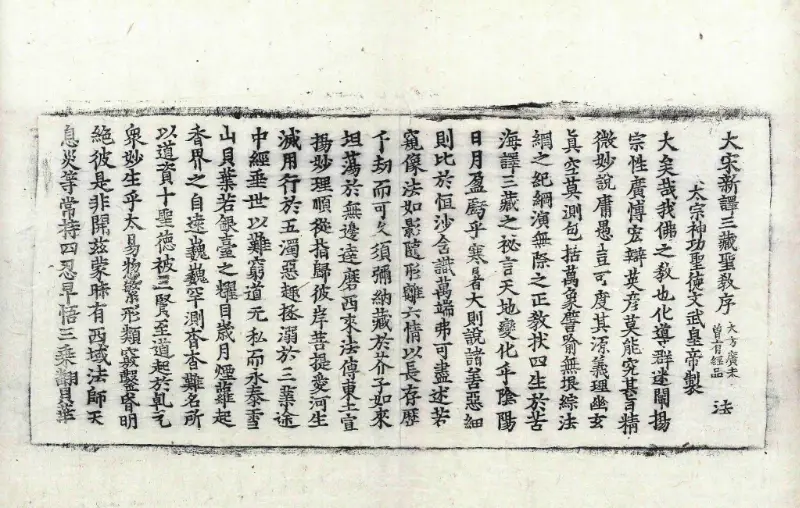 大宋新譯三藏聖教序 大方廣未
曾有經品 法
太宗神功聖德文武皇帝製
大矣哉我佛之教也化導群迷闡揚
宗性廣博宏辯英彥莫能究其旨精
微妙說庸愚豈可度其源義理幽玄
眞空莫測包括萬象譬喻無垠綜法
綱之紀綱演無際之正教拔四生於苦
海譯三藏之秘言天地變化乎陰陽
日月盈虧乎寒暑大則說諸善惡細
則比於恒沙含識萬端弗可盡述若
窺像法如影隨形離六情以長存歷
千劫而可久須彌納藏於芥子如來
坦蕩於無邊達磨西來法傳東土宣
揚妙理順從指歸彼岸菩提愛河生
滅用行於五濁惡趣拯溺於三業途
中經垂世以難窮道无私而永泰雪
山貝葉若銀臺之耀目歲月煙蘿起
香界之自遠巍巍罕測杳杳難名所
以道資十聖德被三賢至道起於乹元
衆妙生乎太易物繁形類竅鑿昏明
絶彼是非開茲蒙昧有西域法師天
息災等常持四忍早悟三乘翻貝葉